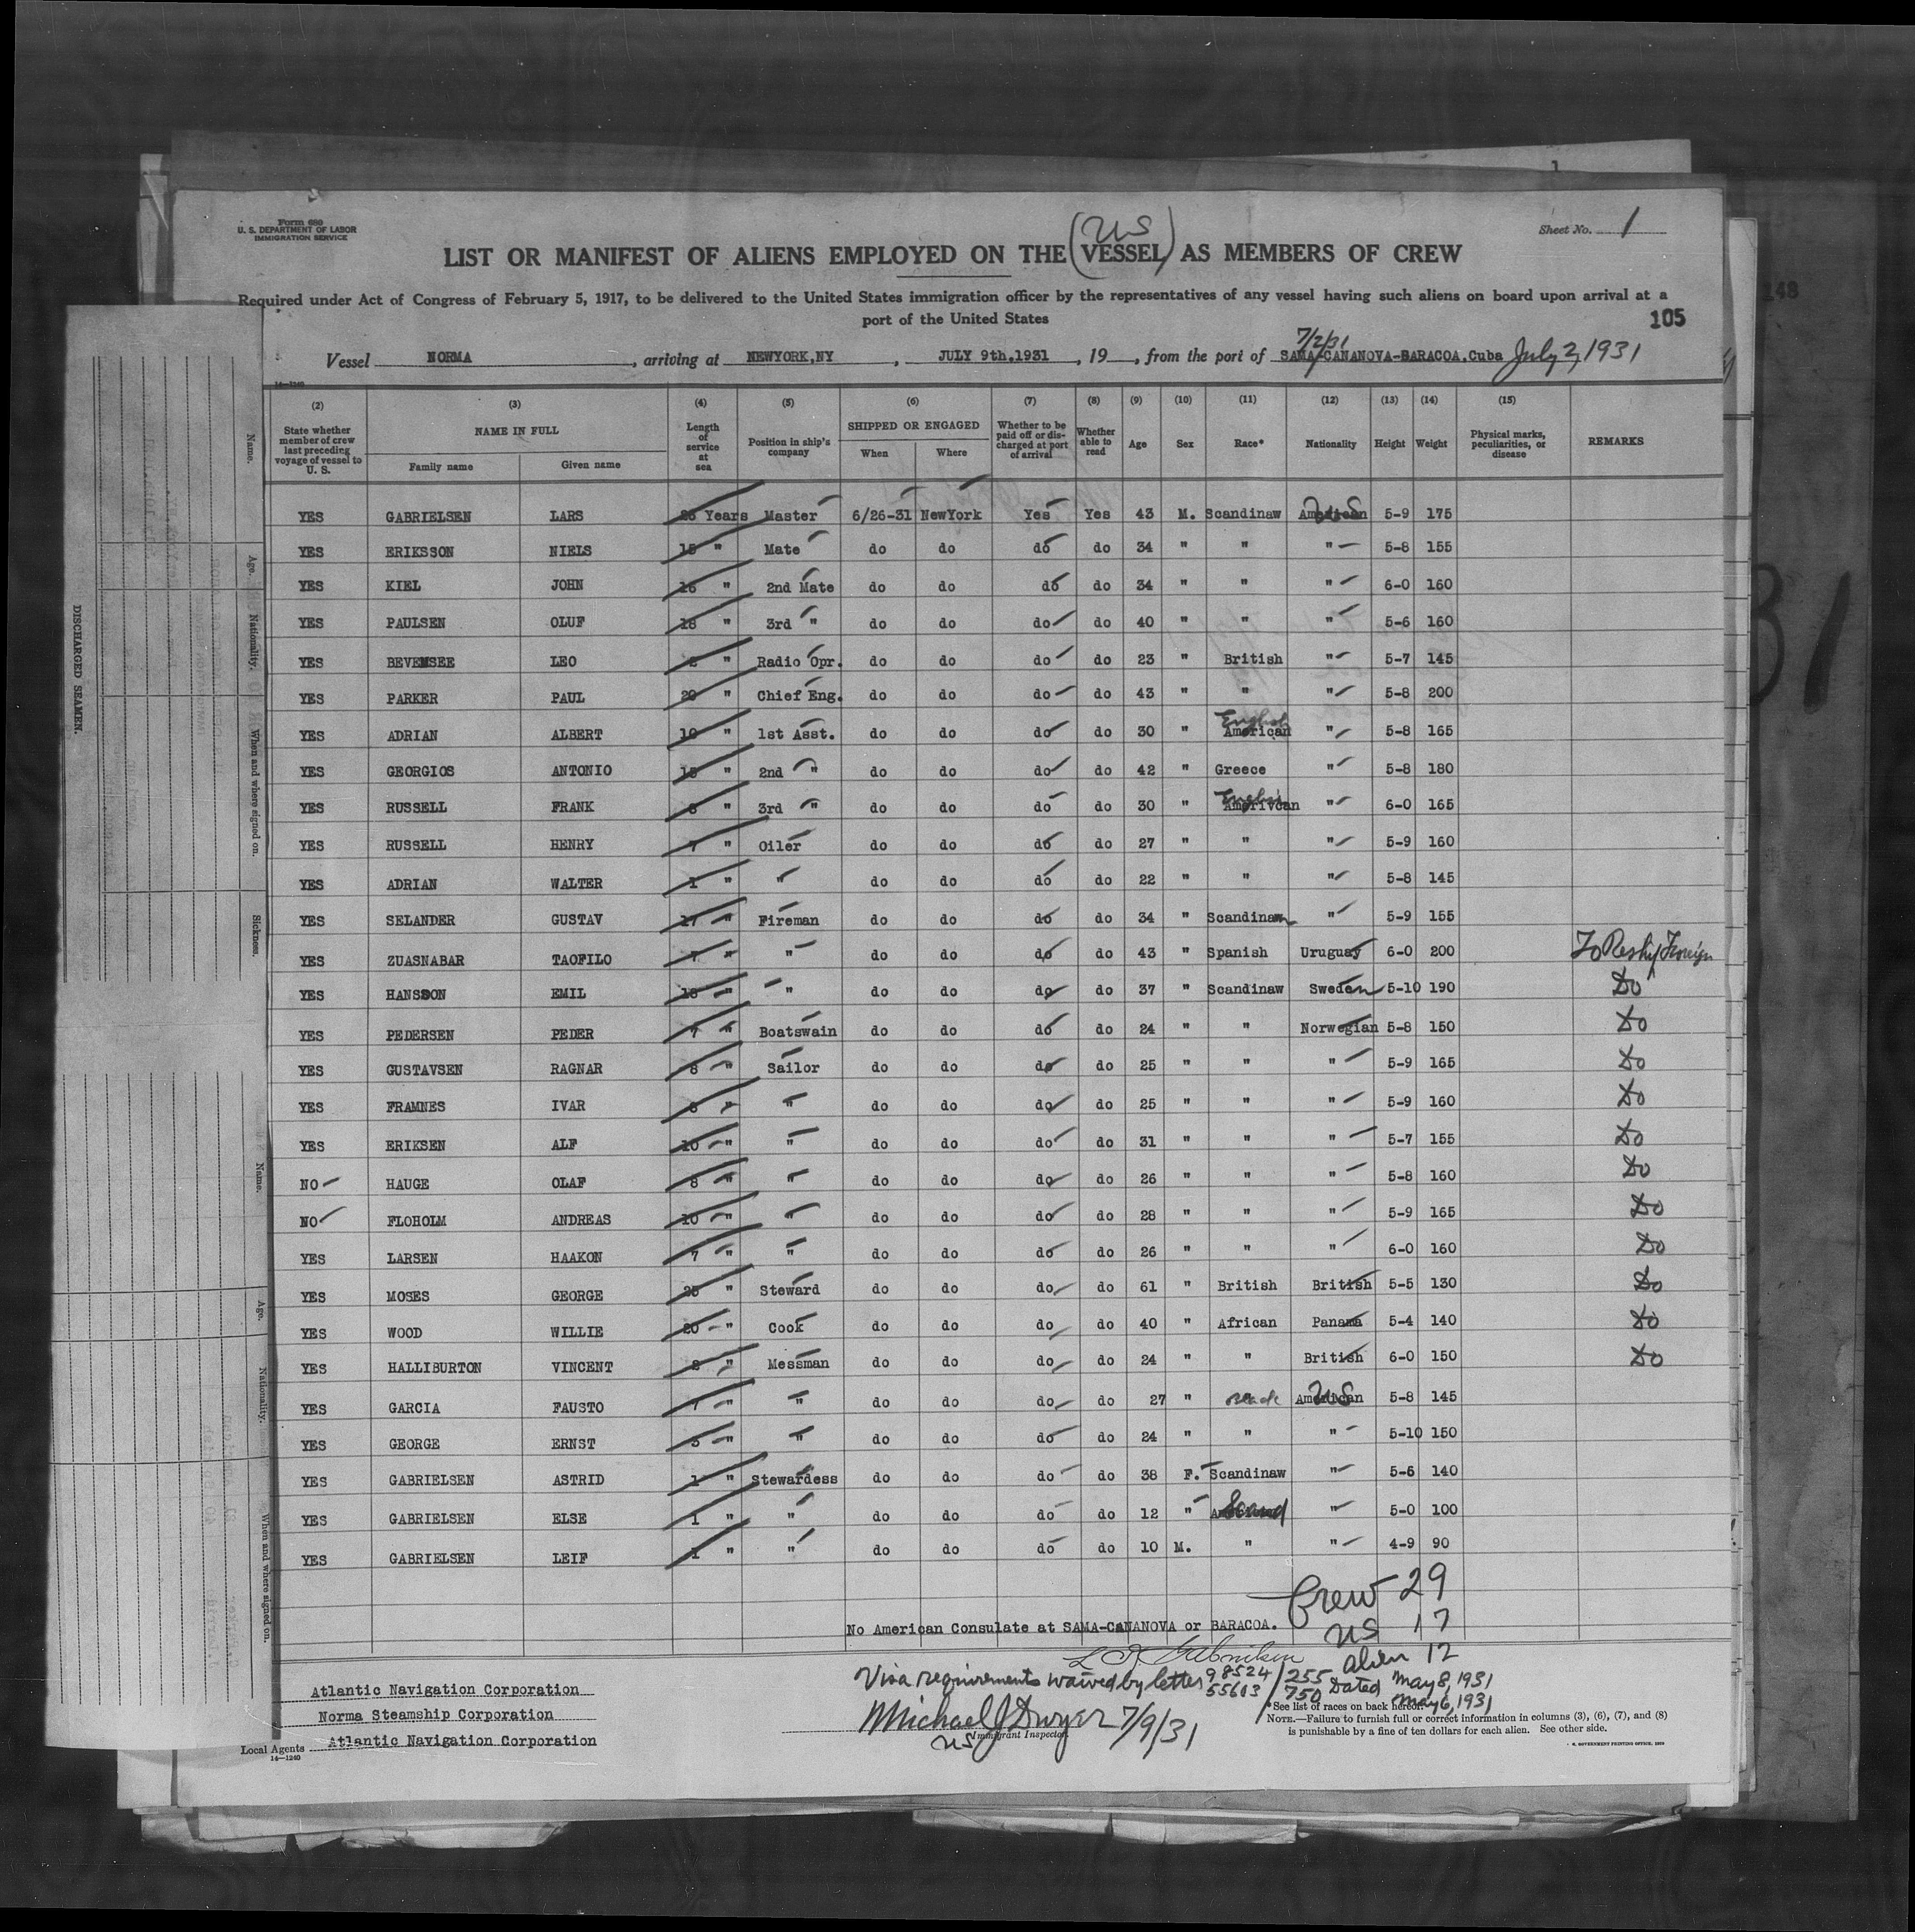 Form 680
U. S. DEPARTMENT OF LABOR
IMMIGRATION SERVICE
Sheet No. 1
US
LIST OR MANIFEST OF ALIENS EMPLOYED ON THE (VESSEL) AS MEMBERS OF CREW
Required under Act of Congress of February 5, 1917, to be delivered to the United States immigration officer by the representatives of any vessel having such aliens on board upon arrival at a
port of the United States
105
7/2/31
Vessel NORMA, arriving at NEWYORK,NY, JULY 9th,1931, 19, from the port of SAMA-CANANOVA-BARACOA.Cuba July 2, 1931
14-1240
(2) (3) (4) (5) (6) (7) (8) (9) (10) (11) (12) (13) (14) (15)
State whether member of crew last preceding voyage of vessel to U. S. NAME IN FULL Family name Given name Length of service at sea Position in ship's company SHIPPED OR ENGAGED When Where Whether to be paid off or discharged at port of arrival Whether able to read Age Sex Race* Nationality Height Weight Physical marks, peculiarities, or disease REMARKS
YES GABRIELSEN LARS 25 Years Master 6/26-31 NewYork Yes Yes 43 M. Scandinaw American US 5-9 175
YES ERIKSSON NIELS 15 " Mate do do do do 34 " " " 5-8 155
YES KIEL JOHN 16 " 2nd Mate do do do do 34 " " " 6-0 160
YES PAULSEN OLUF 18 " 3rd " do do do do 40 " " " 5-6 160
YES BEVEMSEE LEO 2 " Radio Opr. do do do do 23 " British " 5-7 145
YES PARKER PAUL 20 " Chief Eng. do do do do 43 " " " 5-8 200
YES ADRIAN ALBERT 10 " 1st Asst. do do do do 30 " English American " 5-8 165
YES GEORGIOS ANTONIO 15 " 2nd " do do do do 42 " Greece " 5-8 180
YES RUSSELL FRANK 8 " 3rd " do do do do 30 " English Amerivcan " 6-0 165
YES RUSSELL HENRY 7 " Oiler do do do do 27 " " " 5-9 160
YES ADRIAN WALTER 1 " " do do do do 22 " " " 5-8 145
YES SELANDER GUSTAV 17 " Fireman do do do do 34 " Scandinaw " 5-9 155
YES ZUASNABAR TAOFILO 7 " " do do do do 43 " Spanish Uruguay 6-0 200 To Reship Foreign
YES HANSSON EMIL 18 " " do do do do 37 " Scandinaw Sweden 5-10 190 Do
YES PEDERSEN PEDER 7 " Boatswain do do do do 24 " " Norwegian 5-8 150 Do
YES GUSTAVSEN RAGNAR 8 " Sailor do do do do 25 " " " 5-9 165 Do
YES FRAMNES IVAR 8 " " do do do do 25 " " " 5-9 160 Do
YES ERIKSEN ALF 10 " " do do do do 31 " " " 5-7 155 Do
NO HAUGE OLAF 8 " " do do do do 26 " " " 5-8 160 Do
NO FLOHOLM ANDREAS 10 " " do do do do 28 " " " 5-9 165 Do
YES LARSEN HAAKON 7 " " do do do do 26 " " " 6-0 160 Do
YES MOSES GEORGE 25 " Steward do do do do 61 " British British 5-5 130 Do
YES WOOD WILLIE 20 " Cook do do do do 40 " African Panama 5-4 140 Do
YES HALLIBURTON VINCENT 2 " Messman do do do do 24 " " British 6-0 150 Do
YES GARCIA FAUSTO 7 " " do do do do 27 " American US 5-8 145
YES GEORGE ERNST 5 " " do do do do 24 " " " 5-10 150
YES GABRIELSEN ASTRID 1 " Stewardess do do do do 38 F. Scandinaw " 5-6 140
YES GABRIELSEN ELSE 1 " " do do do do 12 " Scand " 5-0 100
YES GABRIELSEN LEIF 1 " " do do do do 10 M. " " 4-9 90
Crew 29
No American Consulate at SAMA-CANANOVA or BARACOA.
US 17
Alien 12
Visa requirements waived by letter 98524/255 Dated May 8, 1931
55613/750 May 6, 1931
Michael J Dwyer 7/9/31
US Immigrant Inspector.
Atlantic Navigation Corporation
Norma Steamship Corporation
Local Agents Atlantic Navigation Corporation
14-1240
*See list of races on back hereof.
NOTE.—Failure to furnish full or correct information in columns (3), (6), (7), and (8)
is punishable by a fine of ten dollars for each alien. See other side.
DISCHARGED SEAMEN.
Name.
Age.
Nationality.
When and where signed on.
Sickness.
Name.
Age.
Nationality.
When and where signed on.